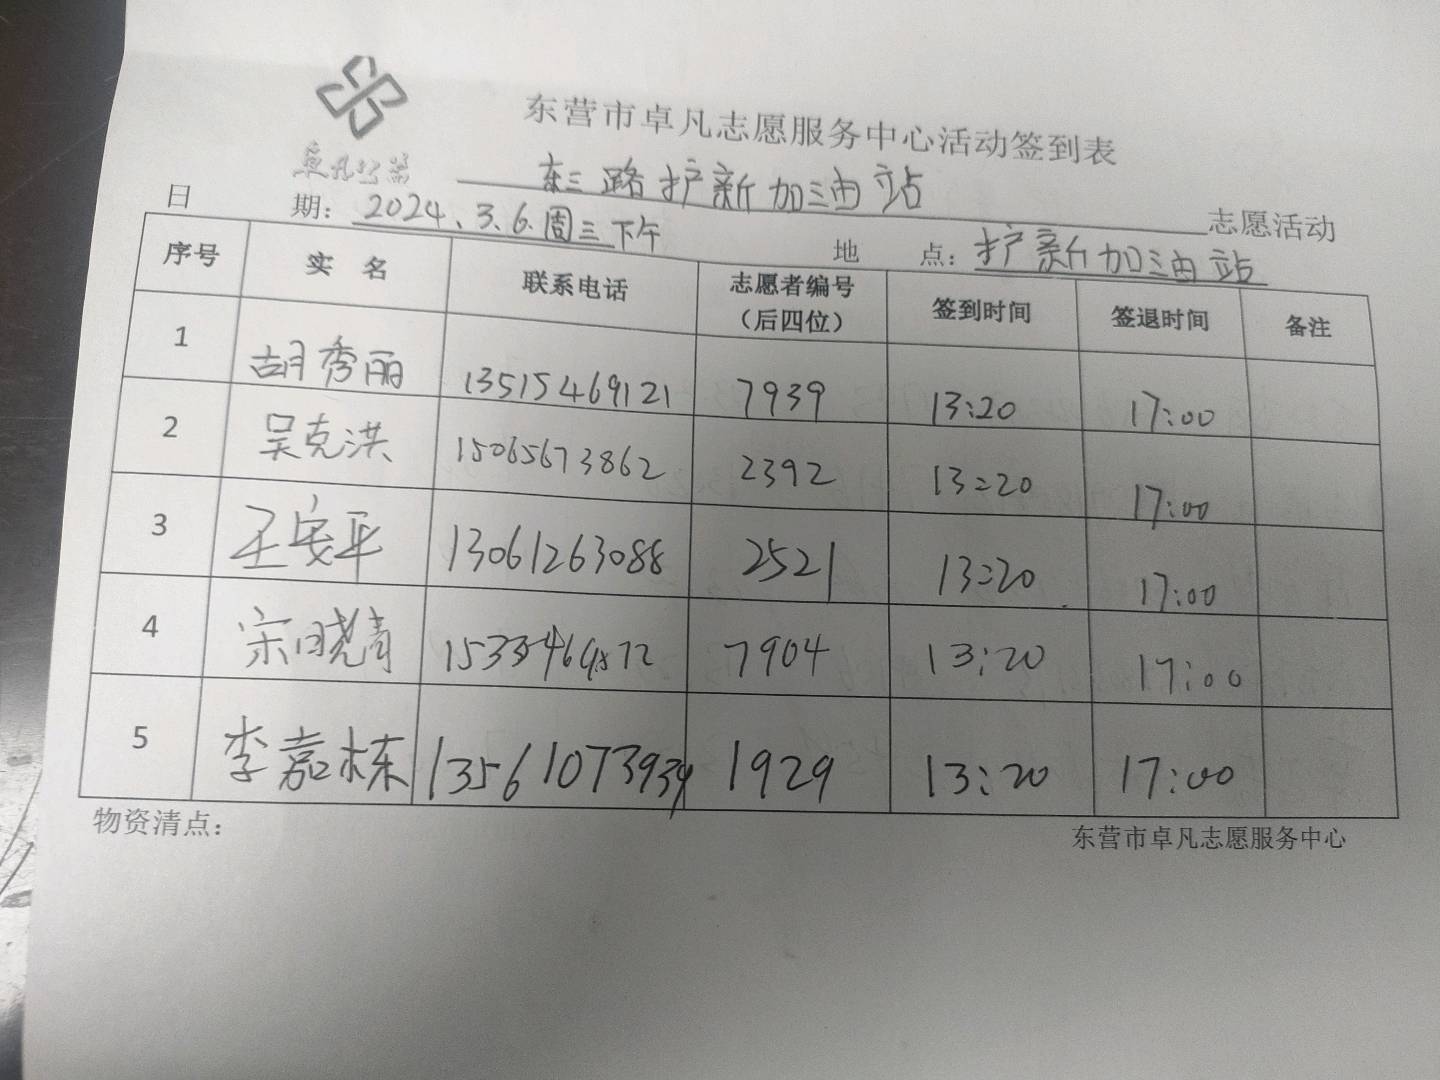 东营市卓凡志愿服务中心活动签到表
卓凡公益
东三路护新加油站 志愿活动
日 期：2024.3.6.周三下午 地 点：护新加油站
序号 实 名 联系电话 志愿者编号（后四位） 签到时间 签退时间 备注
1 胡秀丽 13515469121 7939 13:20 17:00
2 吴克洪 15065673862 2392 13:20 17:00
3 王安平 13061263088 2521 13:20 17:00
4 宋晓青 7904 13:20 17:00
5 李嘉栋 13561073939 1929 13:20 17:00
物资清点： 东营市卓凡志愿服务中心